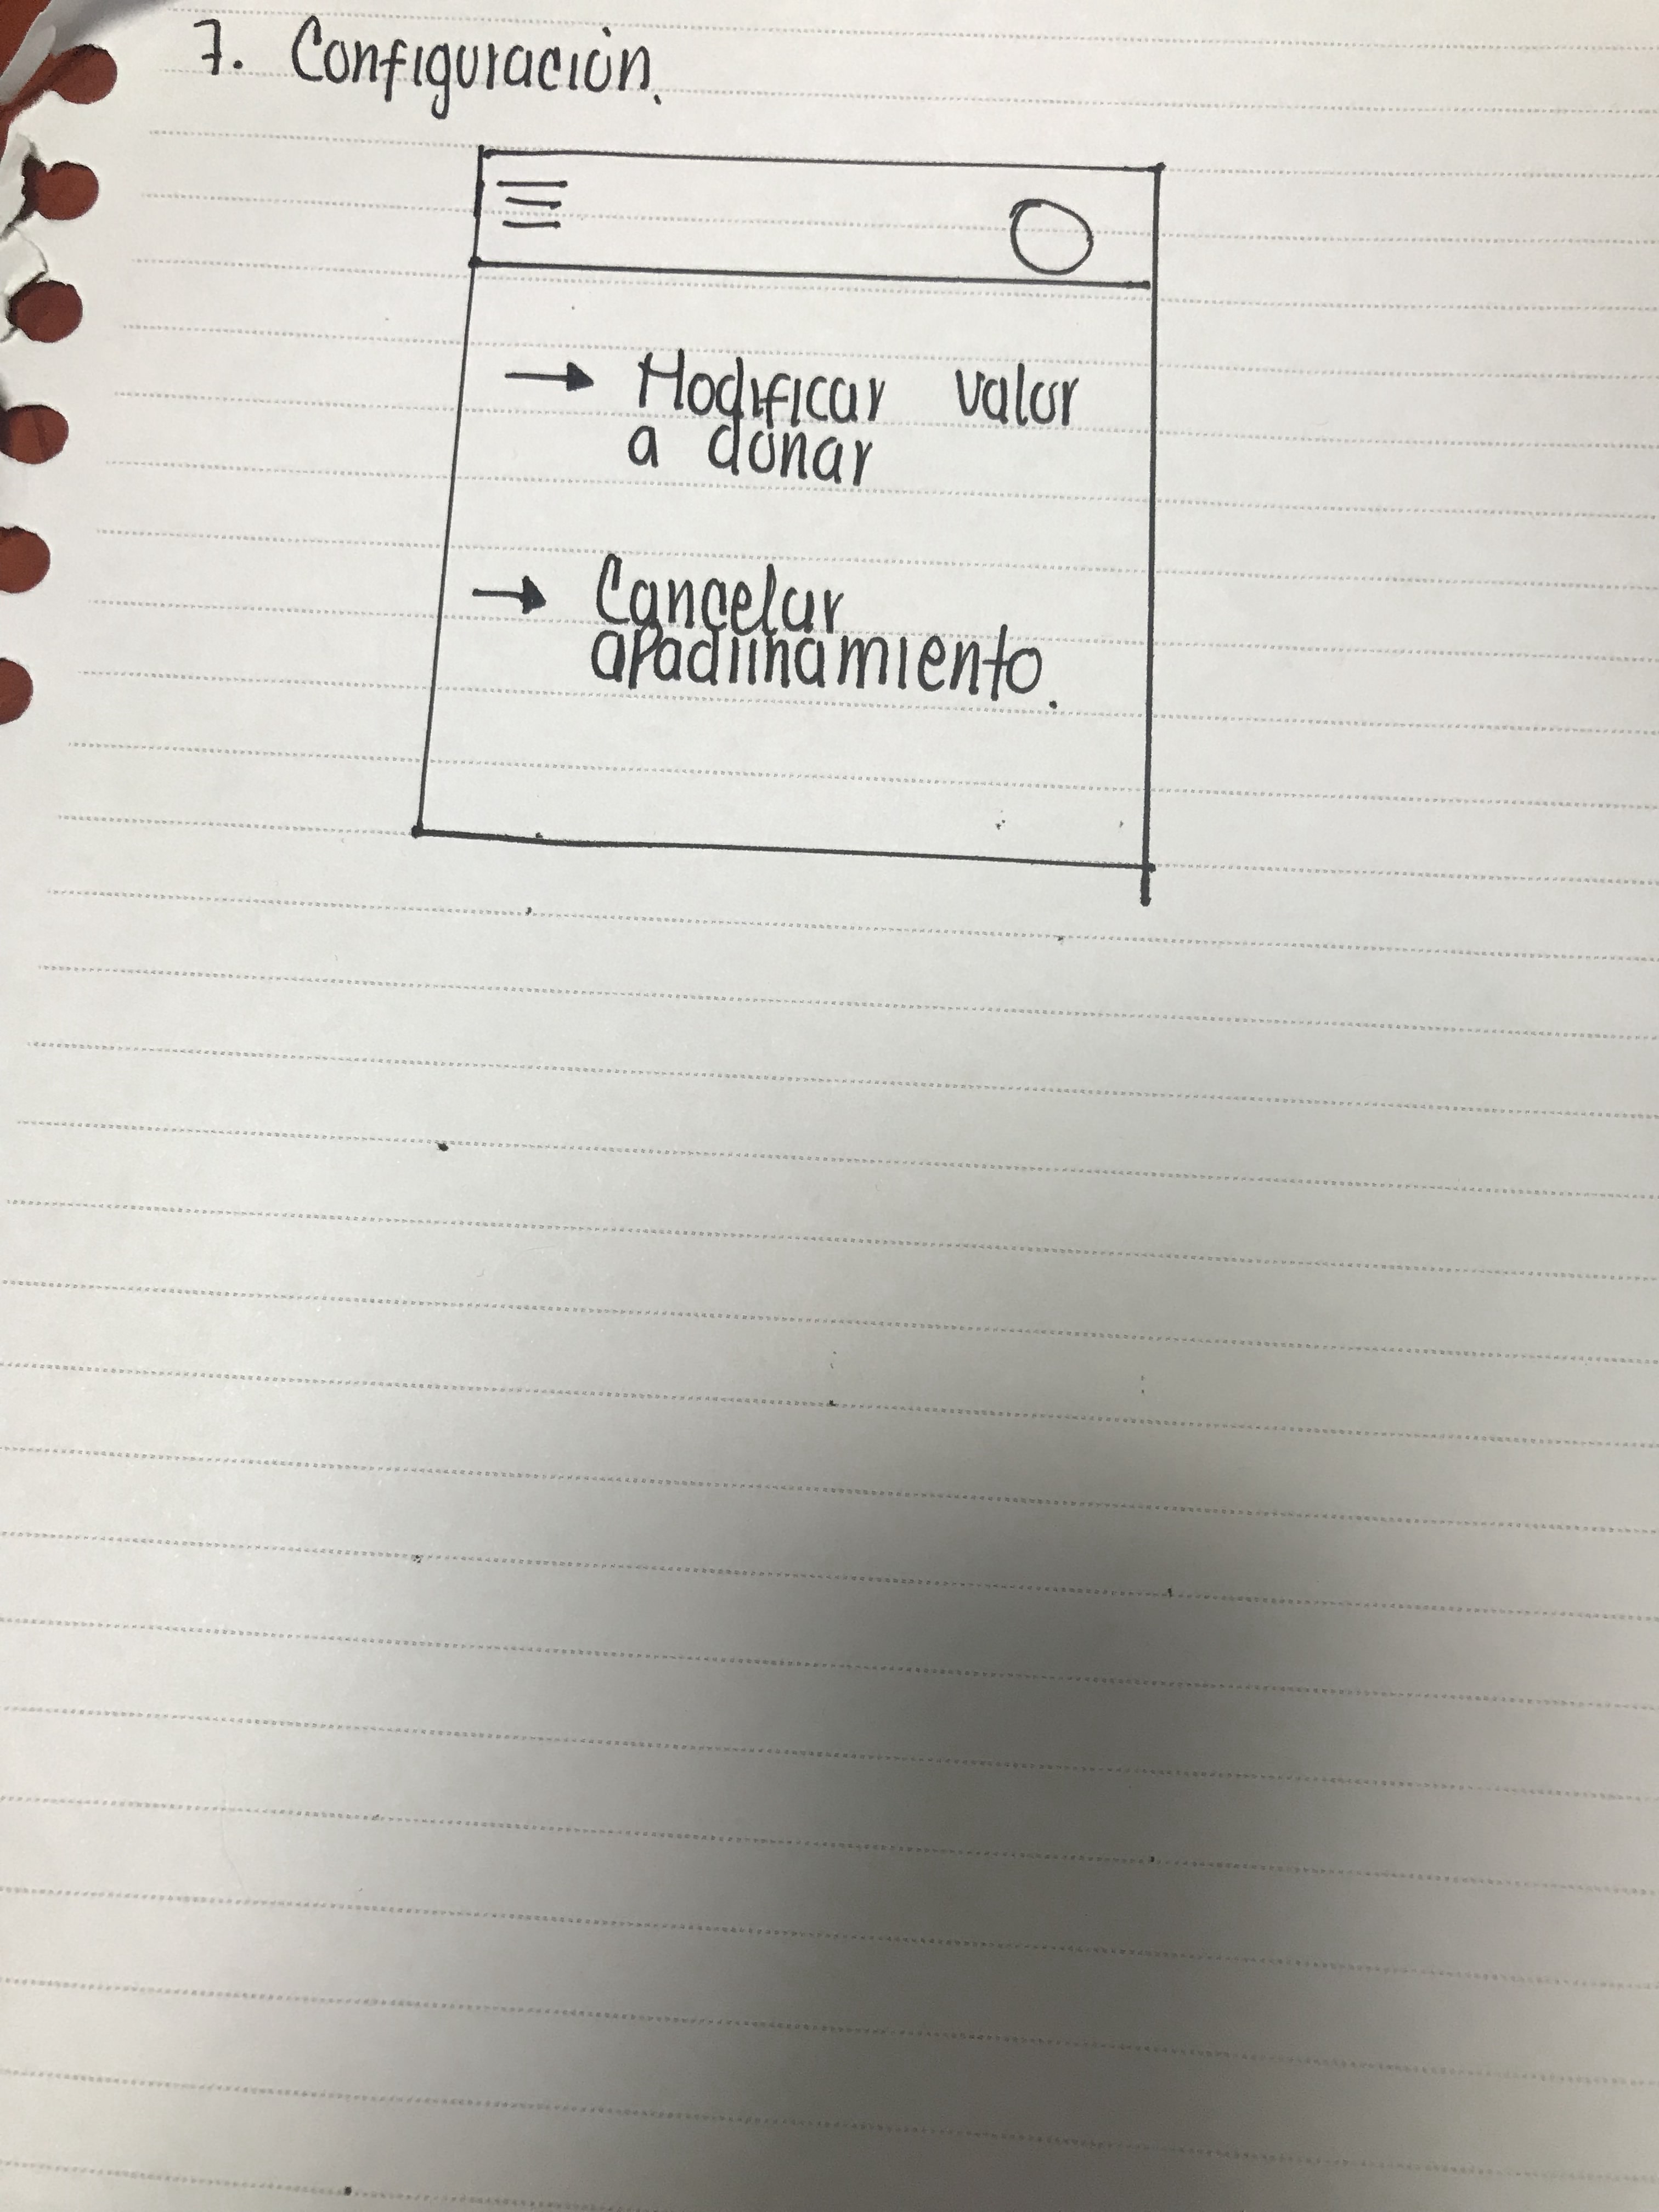 7. Configuración.
→ Modificar valor
a donar
→ Cancelar
apadrinamiento.